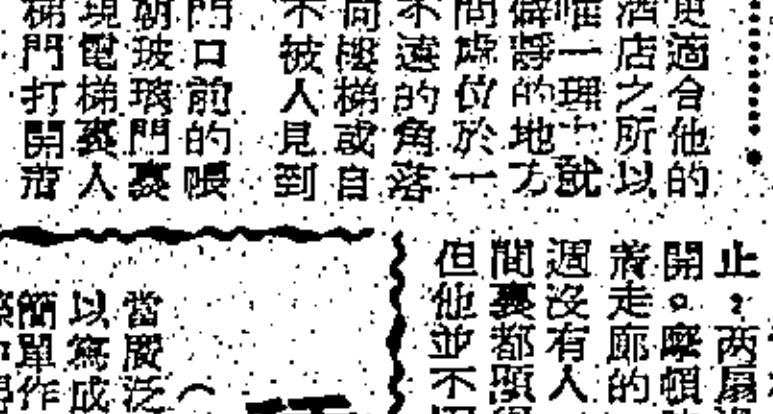 更適合他的
酒店之所以
唯一理由就
僻靜的地方
間處位於一
不遠的角落
向樓梯或自
不被人見到
門口前的帳
朝玻璃門裏
現電梯裏人
梯門打開着
止，两扇
開。摩頓
着走廊的
週沒有人
間裏都顯
但他並不
當廣泛
以寫成
簡單作